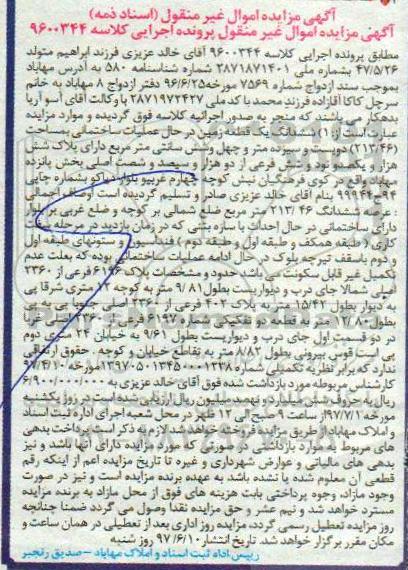 آگهی مزایده اموال غیر منقول (اسناد ذمه)
آگهی مزایده اموال غیر منقول پرونده اجرایی کلاسه ۹۶۰۰۳۴۴
مطابق پرونده اجرایی کلاسه ۹۶۰۰۳۴۴ آقای خالد عزیزی فرزند ابراهیم متولد
۴۷/۵/۲۶ بشماره ملی ۲۸۷۱۸۷۱۴۰۱ شماره شناسنامه ۵۸۰ به آدرس مهاباد
بموجب سند ازدواج شماره ۷۵۶۹ مورخه ۹۶/۶/۲۵ دفتر ازدواج ۸ مهاباد به خانم
سرچل کاکا آقازاده فرزند محمد با کد ملی ۲۸۷۱۹۷۲۴۲۷ با وکالت آقای آسو آریا
بدهکار می باشند که منجر به صدور اجرائیه کلاسه فوق گردیده و موارد مزایده
عبارت است از: ۱) ششدانگ یک قطعه زمین در حال عملیات ساختمانی بمساحت
(۲۱۳/۴۶) دویست و سیزده متر و چهل و شش سانتی متر مربع دارای پلاک شش
هزار و یکصد و نود و شش فرعی از دو هزار و سیصد و شصت اصلی بخش پانزده
مهاباد واقع در کوی فرهنگیان نبش کوچه چهارم غربیو بلوار دیاکو بشماره چاپی
۹۹۹۴۴-۹۴ بنام آقای خالد عزیزی صادر و تسلیم گردیده است اوصاف اجمالی
: عرصه ششدانگ ۲۱۳/۴۶ متر مربع ضلع شمالی بر کوچه و ضلع غربی بر بلوار
دارای ساختمانی در حال احداث با سازه بتنی که در زمان بازدید در مرحله سفت
کاری (طبقه همکف و طبقه اول و طبقه دوم) فنداسیون و ستونهای طبقه اول
و دوم باسقف تیرچه بلوک در حال ادامه عملیات ساختمانی بوده که بعلت عدم
تکمیل غیر قابل سکونت می باشد حدود و مشخصات پلاک ۶۱۹۶ فرعی از ۲۳۶۰
اصلی شمالا جای درب و دیواریست بطول ۹/۸۱ متر به کوچه ۱۲ متری شرقا پی
به دیوار بطول ۱۵/۴۲ متر به پلاک ۴۰۲ فرعی از ۲۳۶۰ اصلی جنوبا پی به پی
بطول ۱۷/۸۰ متر به قطعه دو تفکیکی شماره ۶۱۹۷ فرعی از ۲۳۶۰ اصلی غربا
در دو قسمت اول جای درب و دیواریست بطول ۹/۶۱ به خیابان ۲۴ متری دوم
پی است قوس بیرونی بطول ۸/۸۲ متر به تقاطع خیابان و کوچه. حقوق ارتفاقی
ندارد که برابر نظریه تکمیلی شماره ۱۳۹۷۰۵۰۱۳۴۵۰۰۰۱۲۳۸ مورخه ۹۷/۴/۱۰
کارشناس مربوطه مورد بازداشت شده فوق آقای خالد عزیزی به ۶/۹۰۰/۰۰۰/۰۰۰
ریال به حروف شش میلیارد و نهصد میلیون ریال ارزیابی شده است در روز یکشنبه
مورخه ۹۷/۷/۱ از ساعت ۹ صبح الی ۱۲ ظهر در محل شعبه اجرای اداره ثبت اسناد
و املاک مهاباد از طریق مزایده فروخته خواهد شد لازم به ذکر است پرداخت بدهی
های مربوط به موارد بازداشتی در صورتی که مورد مزایده دارای آنها باشد و نیز
بدهی های مالیاتی و عوارض شهرداری و غیره تا تاریخ مزایده اعم از اینکه رقم
قطعی آن معلوم شده یا نشده باشد به عهده برنده مزایده است و نیز در صورت
وجود مازاد، وجوه پرداختی بابت هزینه های فوق از محل مازاد به برنده مزایده
مسترد خواهد شد و نیم عشر و حق مزایده نقدا وصول می گردد ضمنا چنانچه
روز مزایده تعطیل رسمی گردد، مزایده روز اداری بعد از تعطیلی در همان ساعت و
مکان مقرر برگزار خواهد شد. تاریخ انتشار ۹۷/۶/۱۰ روز شنبه
رییس اداره ثبت اسناد و املاک مهاباد – صدیق رنجبر